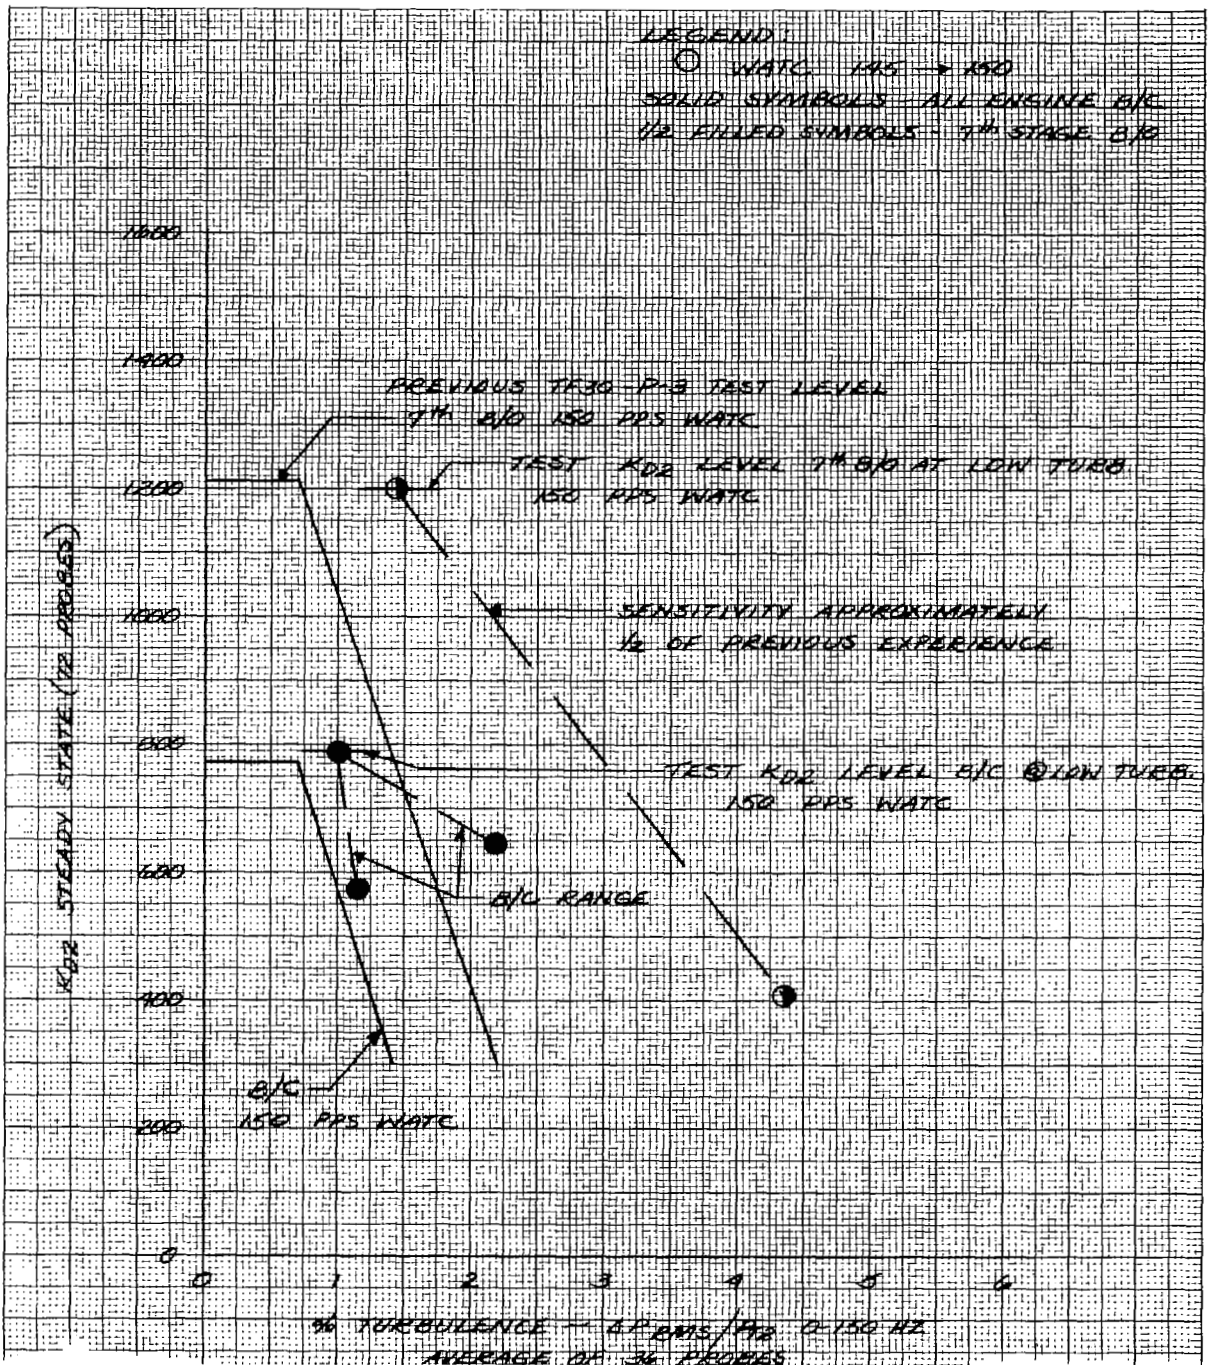 LEGEND:
WATC 145 → 150
SOLID SYMBOLS - ALL ENGINE B/C
1/2 FILLED SYMBOLS - 7th STAGE B/O
1600
1400
PREVIOUS TF30-P-3 TEST LEVEL
7th B/O 150 PPS WATC
TEST KD2 LEVEL 7th B/O AT LOW TURB.
150 PPS WATC
1200
1000
SENSITIVITY APPROXIMATELY
1/2 OF PREVIOUS EXPERIENCE
800
TEST KD2 LEVEL B/C @ LOW TURB.
150 PPS WATC
600
B/C RANGE
KD2 STEADY STATE (72 PROBES)
400
B/C
150 PPS WATC
200
0
0 1 2 3 4 5 6
% TURBULENCE - ΔP RMS/Pt2 0-150 HZ
AVERAGE OF 36 PROBES